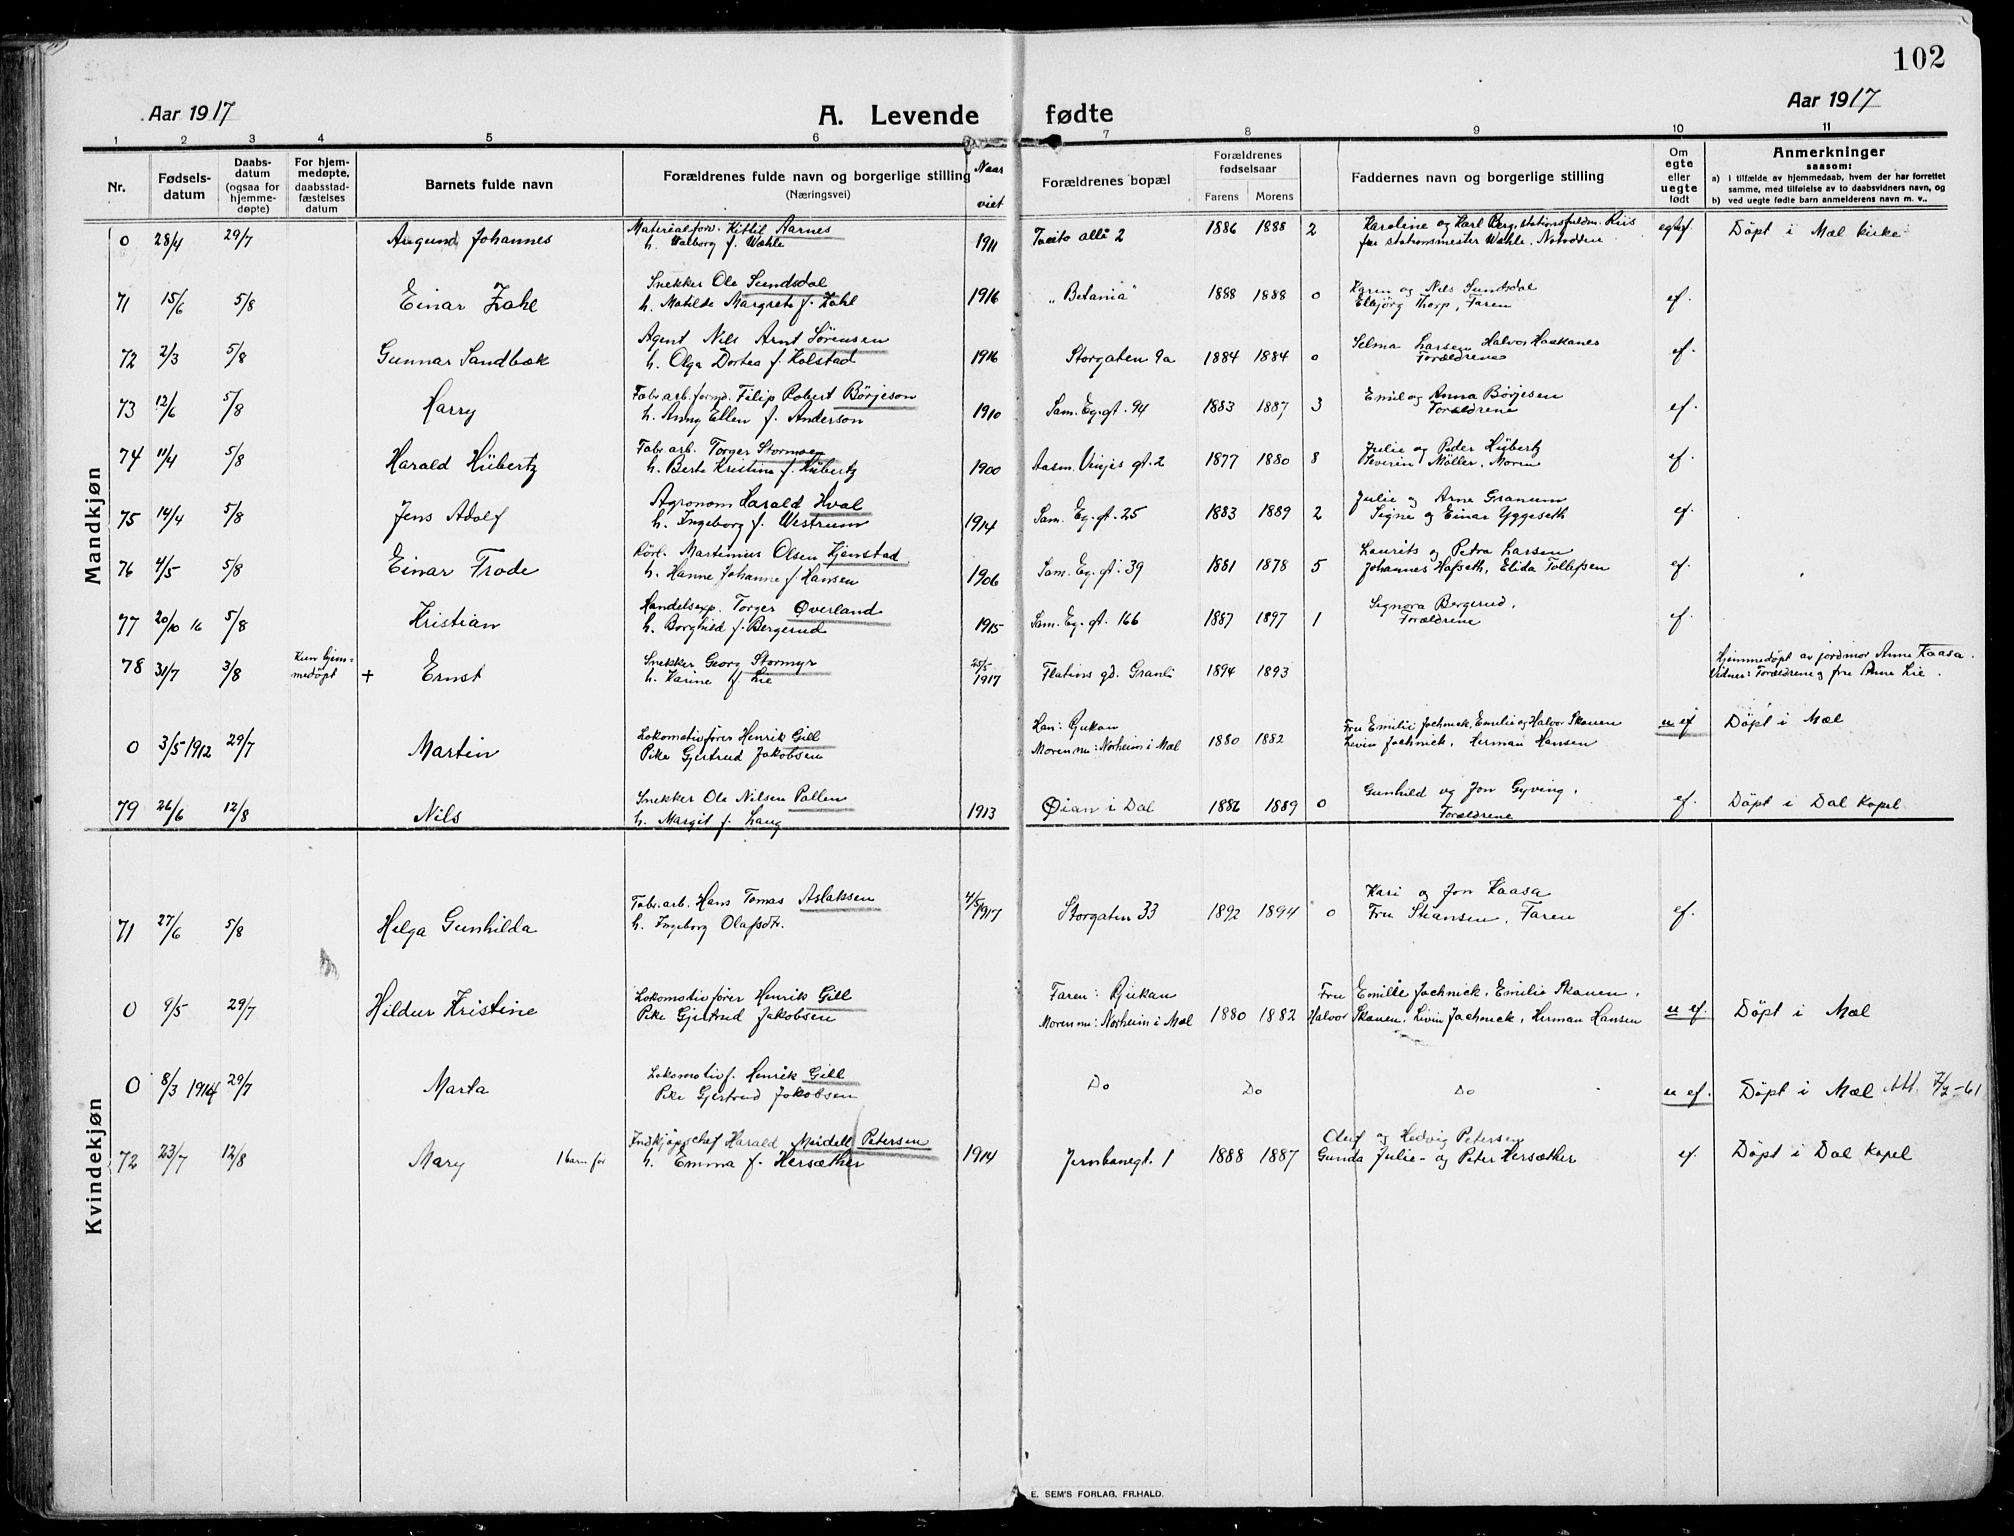 102
Aar 1917
A. Levende fødte
Aar 1917
1 2 3 4 5 6 7 8 9 10 11
Nr.
Fødsels-
datum
Daabs-
datum
(ogsaa for
hjemme-
døpte)
For hjem-
medøpte,
daabsstad-
fæstelses
datum
Barnets fulde navn
Forældrenes fulde navn og borgerlige stilling
(Næringsvei)
Naar
viet
Forældrenes bopæl
Forældrenes
fødselsaar
Farens Morens
Faddernes navn og borgerlige stilling
Om
egte
eller
uegte
født
Anmerkninger
saasom:
a) i tilfælde av hjemmedaab, hvem der har forrettet
samme, med tilføielse av to daabsvidners navn, og
b) ved uegte fødte barn anmelderens navn m. v..
Mandkjøn
0 28/4 29/7 Augund Johannes
Materialforv. Kittil Aarnes
h. Valborg f. Wæhle
1911 Tveito allé 2 1886 1888 2
Karoline og Karl Berg, stationsfuldm. Riis
fru stationsmester Wæhle, Notodden
Döpt i Mæl kirke
71 15/6 5/8 Einar Zahl
Snekker Ole Sundsdal
h. Matilde Margrete f. Zahl
1916 "Betania" 1888 1888 0
Karen og Nils Sundsdal
Elbjörg Thorp, Faren
ef.
72 2/3 5/8 Gunnar Sandbæk
Agent Nils Arnt Sörensen
h. Olga Dortea f. Kolstad
1916 Storgaten 9a 1884 1884 0
Selma Larsen Halvor Haakanes
Forældrene
ef.
73 12/6 5/8 Harry
Fabr.arb.formd. Filip Robert Börjeson
h. Anny Ellen f. Anderson
1910 Sam. Eg. gt. 94 1883 1887 3
Emil og Anna Börjesen
Forældrene
ef.
74 11/4 5/8 Harald Hübertz
Fabr. arb. Torger Stormoen
h. Berte Kristine f. Hübertz
1900 Aasm. Vinjes gt. 2 1877 1880 8
Julie og Peder Hübertz
Severin Möller, Moren
ef.
75 14/4 5/8 Jens Adolf
Agronom Harald Hval
h. Ingeborg f. Westrum
1914 Sam. Eg. gt. 25 1883 1889 2
Julie og Arne Granum
Signe og Einar Yggeseth
ef.
76 4/5 5/8 Einar Frode
Martinius Olsen Kjenstad
h. Hanne Johanne f. Hansen
1906 Sam. Eg. gt. 39 1881 1878 5
Laurits og Petra Larsen
Johannes Hafseth, Elida Tollefsen
ef.
77 20/10 16 5/8 Kristian
Handelsexp. Torger Øverland
h. Borghild f. Bergerud
1915 Sam. Eg. gt. 166 1887 1897 1
Signora Bergerud,
Forældrene
ef.
78 31/7 3/8 Kun hjem-
medøpt + Ernst
Snekker Georg Stormyr
h. Karine f. Lie
25/5
1917 Flatins gd. Granli 1894 1893
Hjemmedöpt av jordmor Anne Kaasa.
Vidner: Forældrene og fru Anne Lie.
0 3/5 1912 29/7 Martin
Lokomotivfører Henrik Gill
Pike Gjertrud Jakobsen
Han: Rjukan
Moren nu: Norheim i Mæl 1880 1882
Fru Emilie Jochnick, Emilie og Halvor Skauen
Livin Jochnick, Herman Hansen
u ef Döpt i Mæl
79 26/6 12/8 Nils
Snekker Ole Nilsen Pollen
h. Margit f. Haug
1913 Øian i Dal 1886 1889 0
Gunhild og Jon Gyving,
Forældrene
ef. Döpt i Dal kapel
Kvindekjøn
71 27/6 5/8 Helga Gunhilda
Fabr.arb. Hans Tomas Aslaksen
h. Ingeborg Olafsdtr.
4/5 1917 Storgaten 33 1892 1894 0
Kari og Jon Kaasa
Fru Stiansen, Faren
ef.
0 9/5 29/7 Hildur Kristine
Lokomotivfører Henrik Gill
Pike Gjertrud Jakobsen
Faren: Rjukan
Moren nu: Norheim i Mæl 1880 1882
Fru Emilie Jochnick, Emilie Skauen,
Halvor Skauen, Livin Jochnick, Herman Hansen
u ef. Döpt i Mæl
0 8/3 1914 29/7 Marta
Lokomotivf. Henrik Gill
Pike Gjertrud Jakobsen
Do Do Do
u ef. Döpt i Mæl Att. 7/2-61
72 23/7 12/8 Mary 1 barn før
Indkjøpschef Harald Meidell Petersen
h. Emma f. Hersæther
1914 Jernbanegt. 1 1888 1887
Oluf og Hedvig Petersen
Gunda Julie- og Peter Hersæther
ef. Döpt i Dal kapel
E. SEM'S FORLAG, FR.HALD.